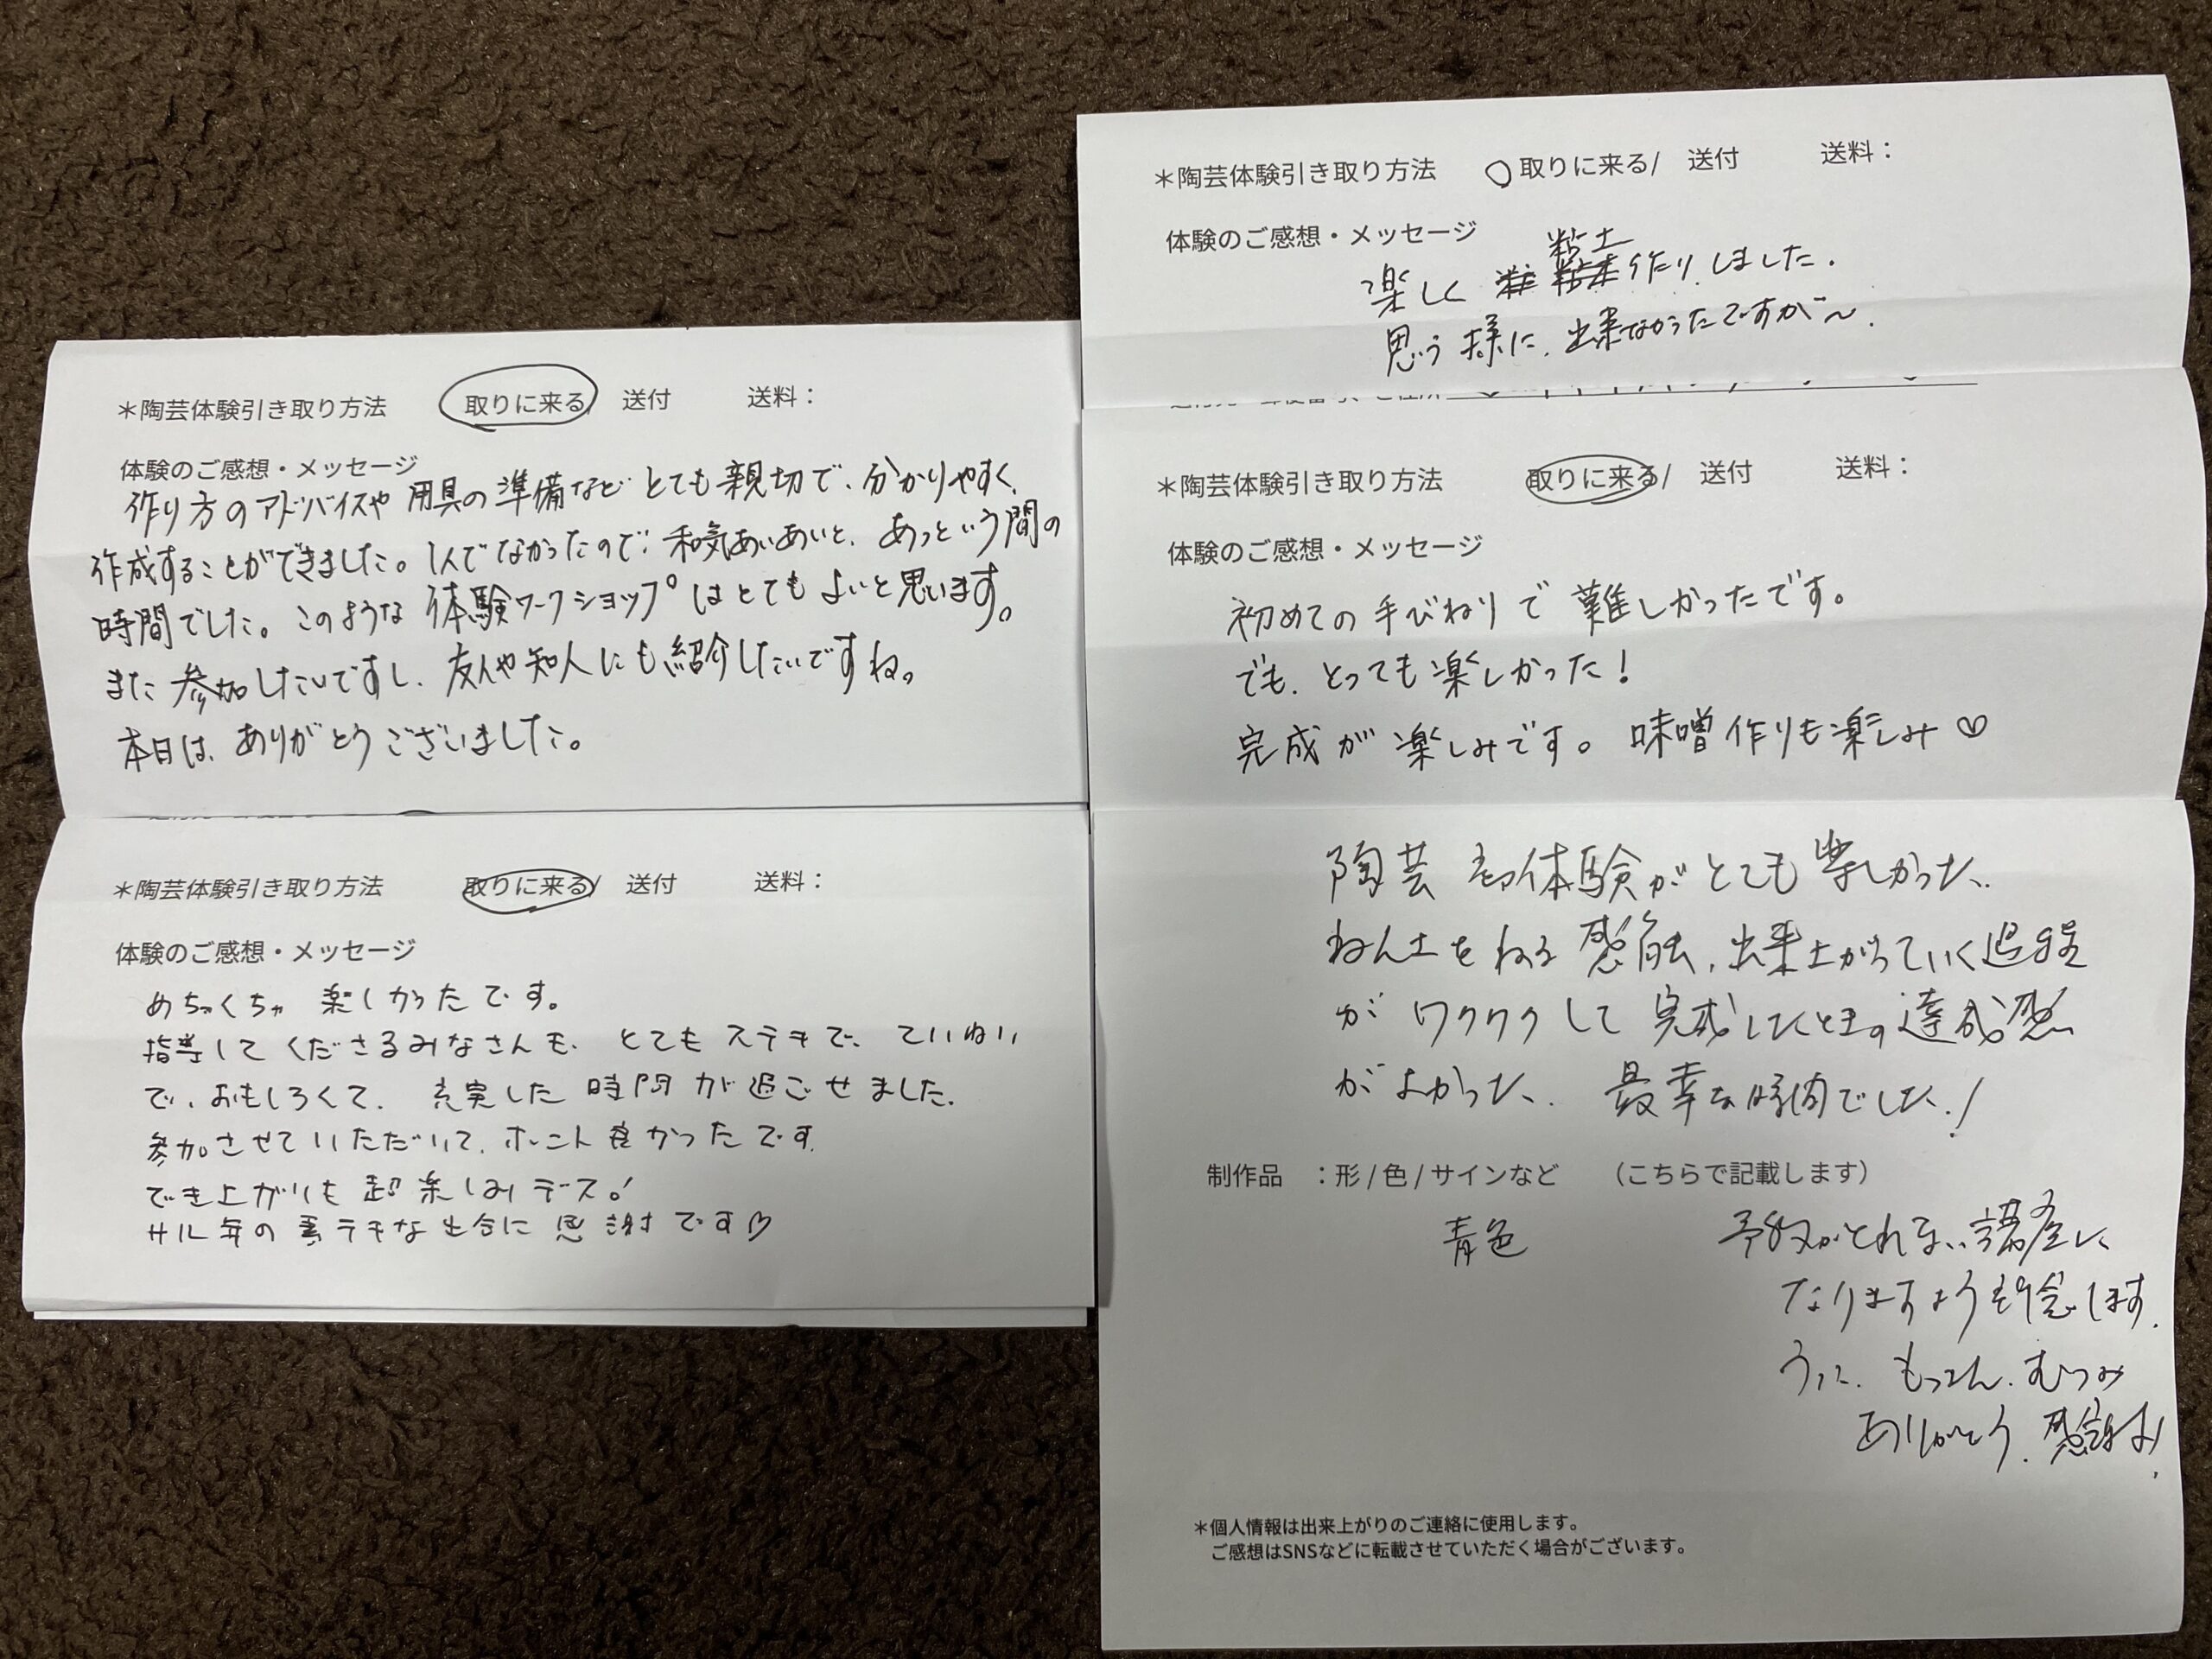 ＊陶芸体験引き取り方法 取りに来る/ 送付 送料：
体験のご感想・メッセージ
作り方のアドバイスや用具の準備などとても親切で、分かりやすく、
作成することができました。1人でなかったので、和気あいあいと、あっという間の
時間でした。このような体験ワークショップはとてもよいと思います。
また参加したいですし、友人や知人にも紹介したいですね。
本日は、ありがとうございました。
＊陶芸体験引き取り方法 取りに来る/ 送付 送料：
体験のご感想・メッセージ
めちゃくちゃ 楽しかったです。
指導してくださるみなさんも、とてもステキで、ていねい
で、おもしろくて、充実した時間が過ごせました。
参加させていただいて、ホント良かったです。
でき上がりも超楽しみデス！
サル年の素テキな出合に感謝です♡
＊陶芸体験引き取り方法 ○取りに来る/ 送付 送料：
体験のご感想・メッセージ
粘土
楽しく 作り しました.
思う様に、出来なかったですが〜.
＊陶芸体験引き取り方法 取りに来る/ 送付 送料：
体験のご感想・メッセージ
初めての手びねりで難しかったです。
でも、とっても楽しかった！
完成が楽しみです。味噌作りも楽しみ♡
陶芸 体験がとても楽しかった、
ねん土をねる感触、出来上がっていく過程
がワクワクして完成したときの達成感
がよかった、最幸な時間でした！
制作品 ：形/色/サインなど （こちらで記載します）
青色
予約がとれない講座に
なりますよう祈念します.
もってん、むつみ
ありがとう. 感謝
＊個人情報は出来上がりのご連絡に使用します。
ご感想はSNSなどに転載させていただく場合がございます。